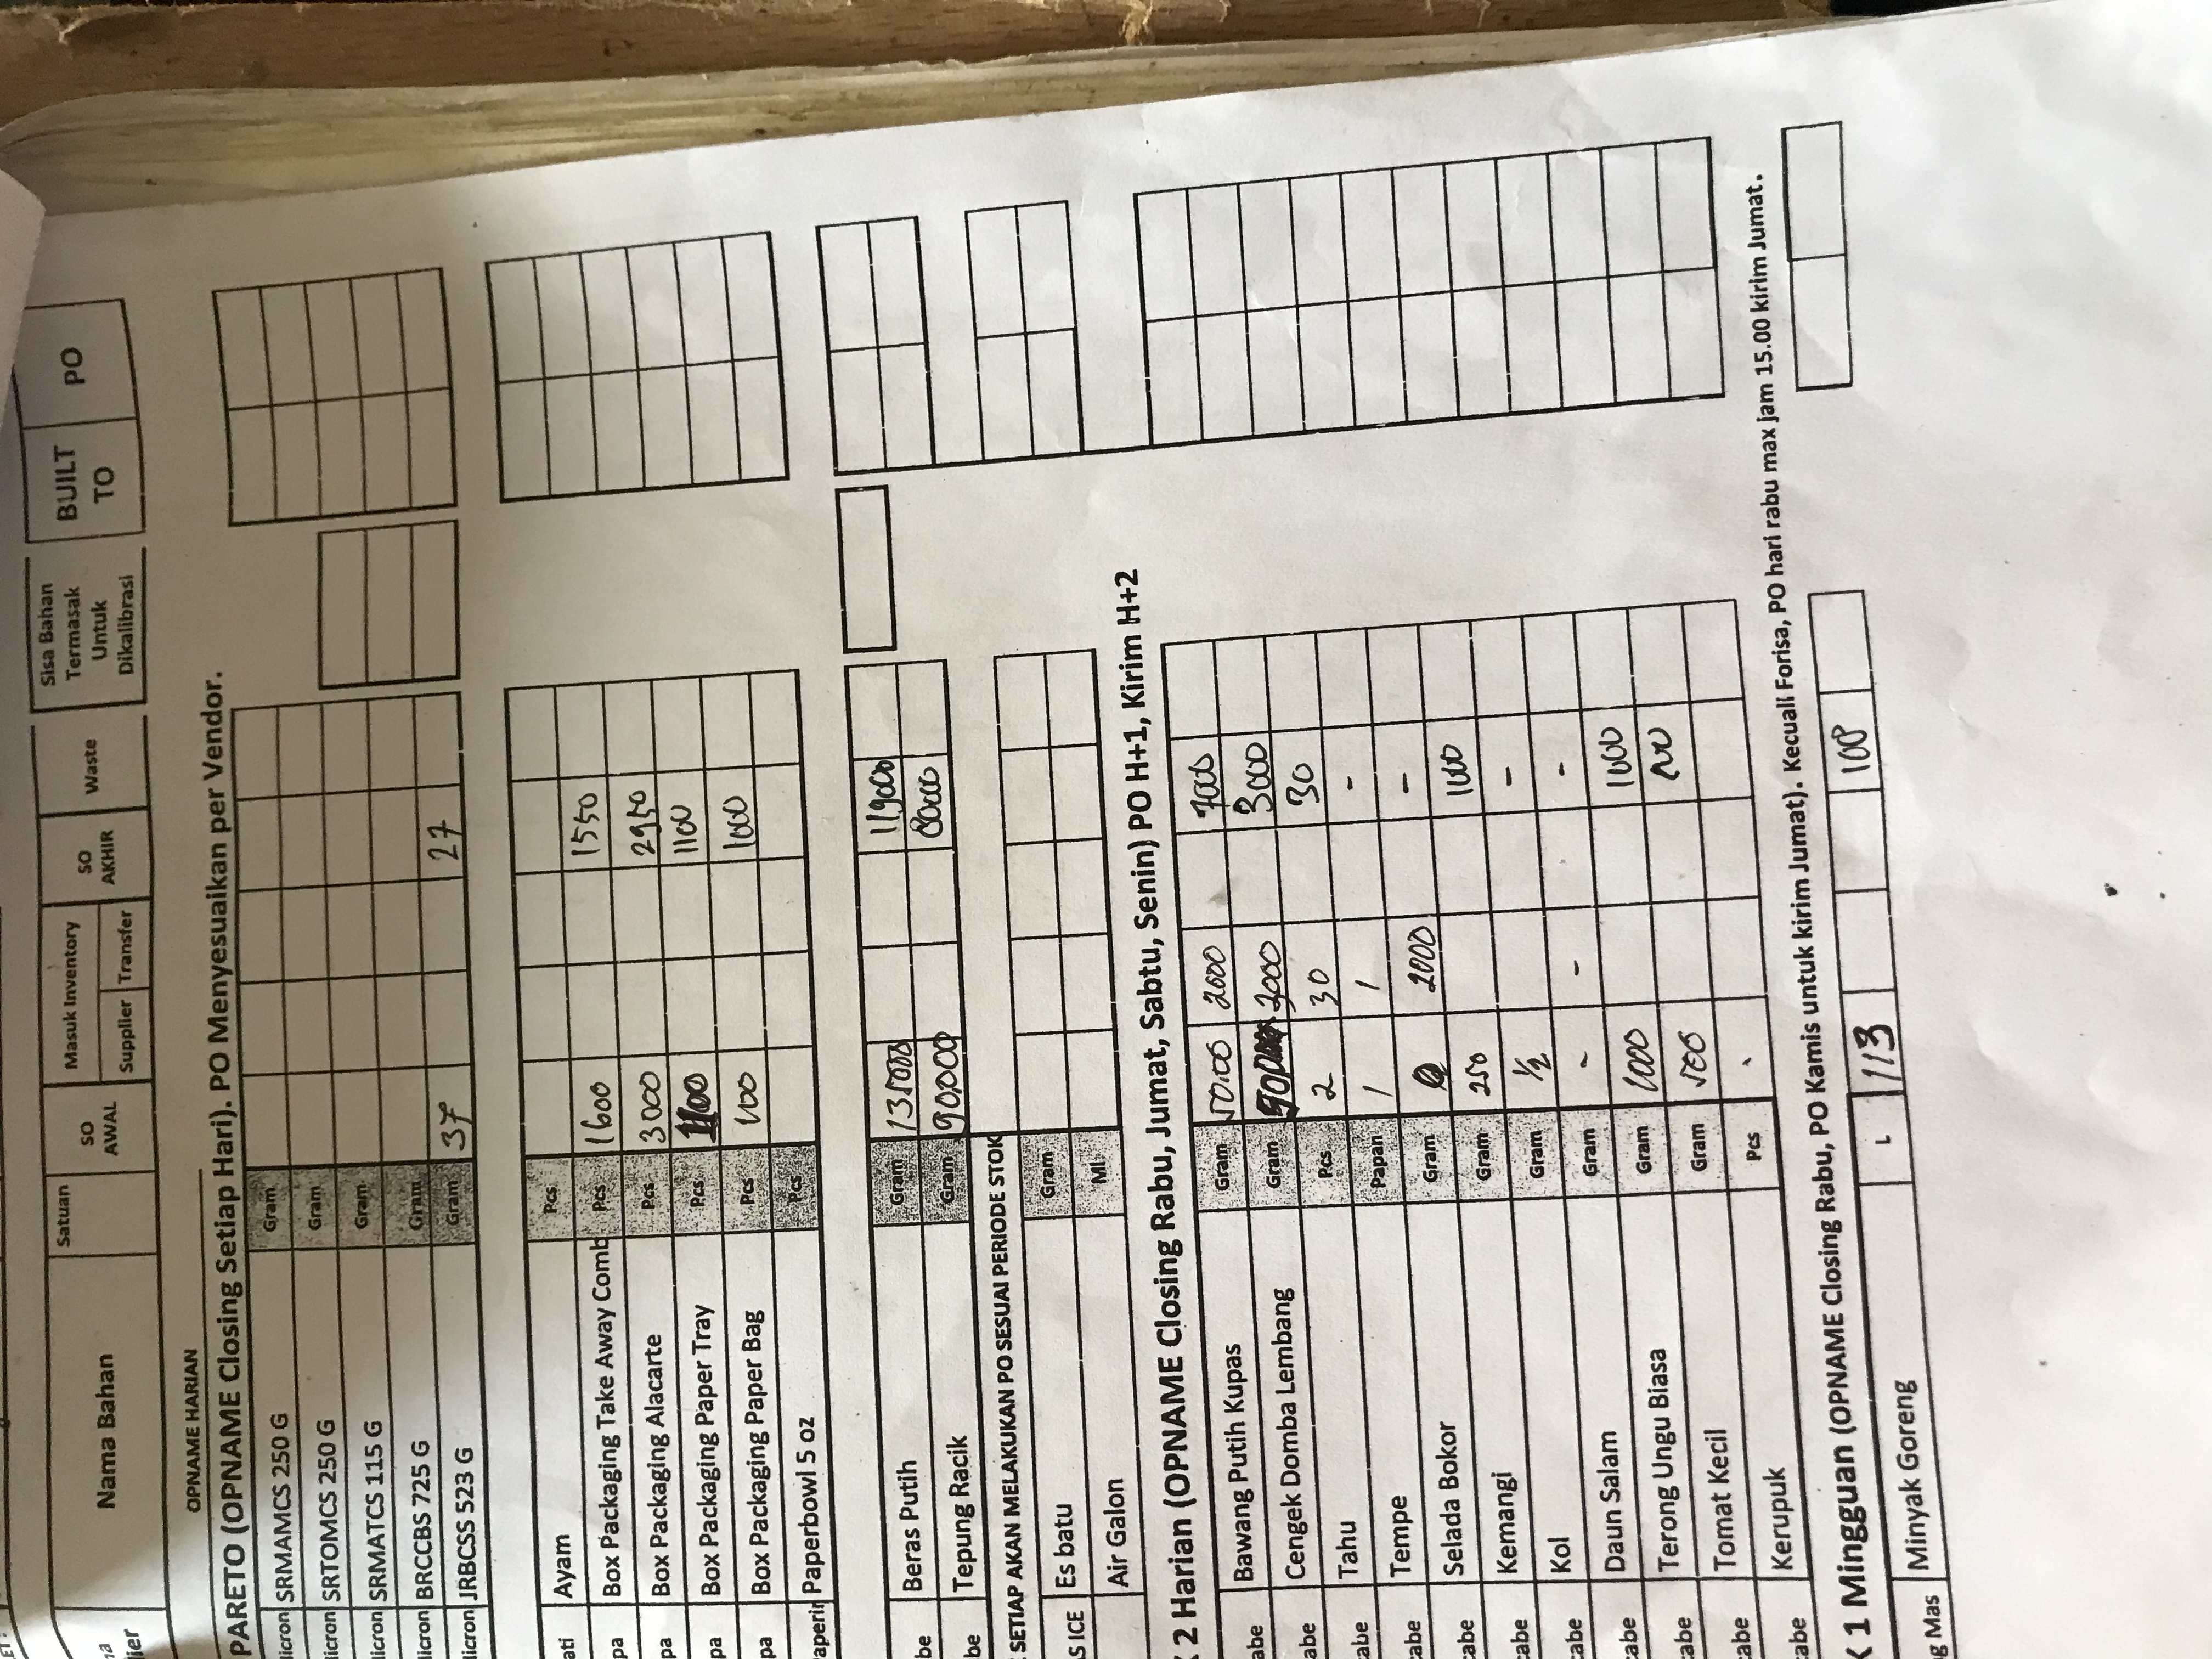 Nama Bahan Satuan SO AWAL Masuk Inventory Supplier Transfer SO AKHIR Waste Sisa Bahan Termasak Untuk Dikalibrasi BUILT TO PO
OPNAME HARIAN
PARETO (OPNAME Closing Setiap Hari). PO Menyesuaikan per Vendor.
icron SRMAMCS 250 G Gram
icron SRTOMCS 250 G Gram
icron SRMATCS 115 G Gram
icron BRCCBS 725 G Gram
icron JRBCSS 523 G Gram 37 27
ati Ayam Pcs
pa Box Packaging Take Away Comb Pcs 1600 1550
pa Box Packaging Alacarte Pcs 3000 2950
pa Box Packaging Paper Tray Pcs 1100 1100
pa Box Packaging Paper Bag Pcs 1000
aperin Paperbowl 5 oz Pcs
be Beras Putih Gram 135000 119000
be Tepung Racik Gram 90.000 80000
SETIAP AKAN MELAKUKAN PO SESUAI PERIODE STOK
S ICE Es batu Gram
Air Galon Ml
K 2 Harian (OPNAME Closing Rabu, Jumat, Sabtu, Senin) PO H+1, Kirim H+2
abe Bawang Putih Kupas Gram 2000 7000
abe Cengek Domba Lembang Gram 3000 3000
abe Tahu Pcs 2 30 30
cabe Tempe Papan 1 1 -
cabe Selada Bokor Gram 2000 -
cabe Kemangi Gram 250 1000
cabe Kol Gram 1/2 -
cabe Daun Salam Gram - - -
cabe Terong Ungu Biasa Gram 1000 1000
cabe Tomat Kecil Gram 500
cabe Kerupuk Pcs
K 1 Mingguan (OPNAME Closing Rabu, PO Kamis untuk kirim Jumat). Kecuali Forisa, PO hari rabu max jam 15.00 kirim Jumat.
g Mas Minyak Goreng L 113 108